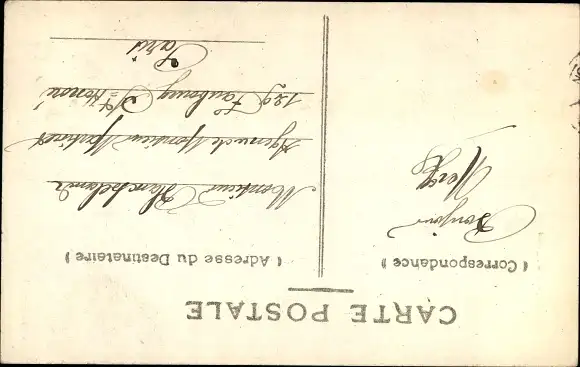 CARTE POSTALE
( Correspondance )
Bonjour
( Adresse du Destinataire )
Monsieur Blanchelande
Agence de Monsieur Martinet
129 Faubourg St Honoré
Paris